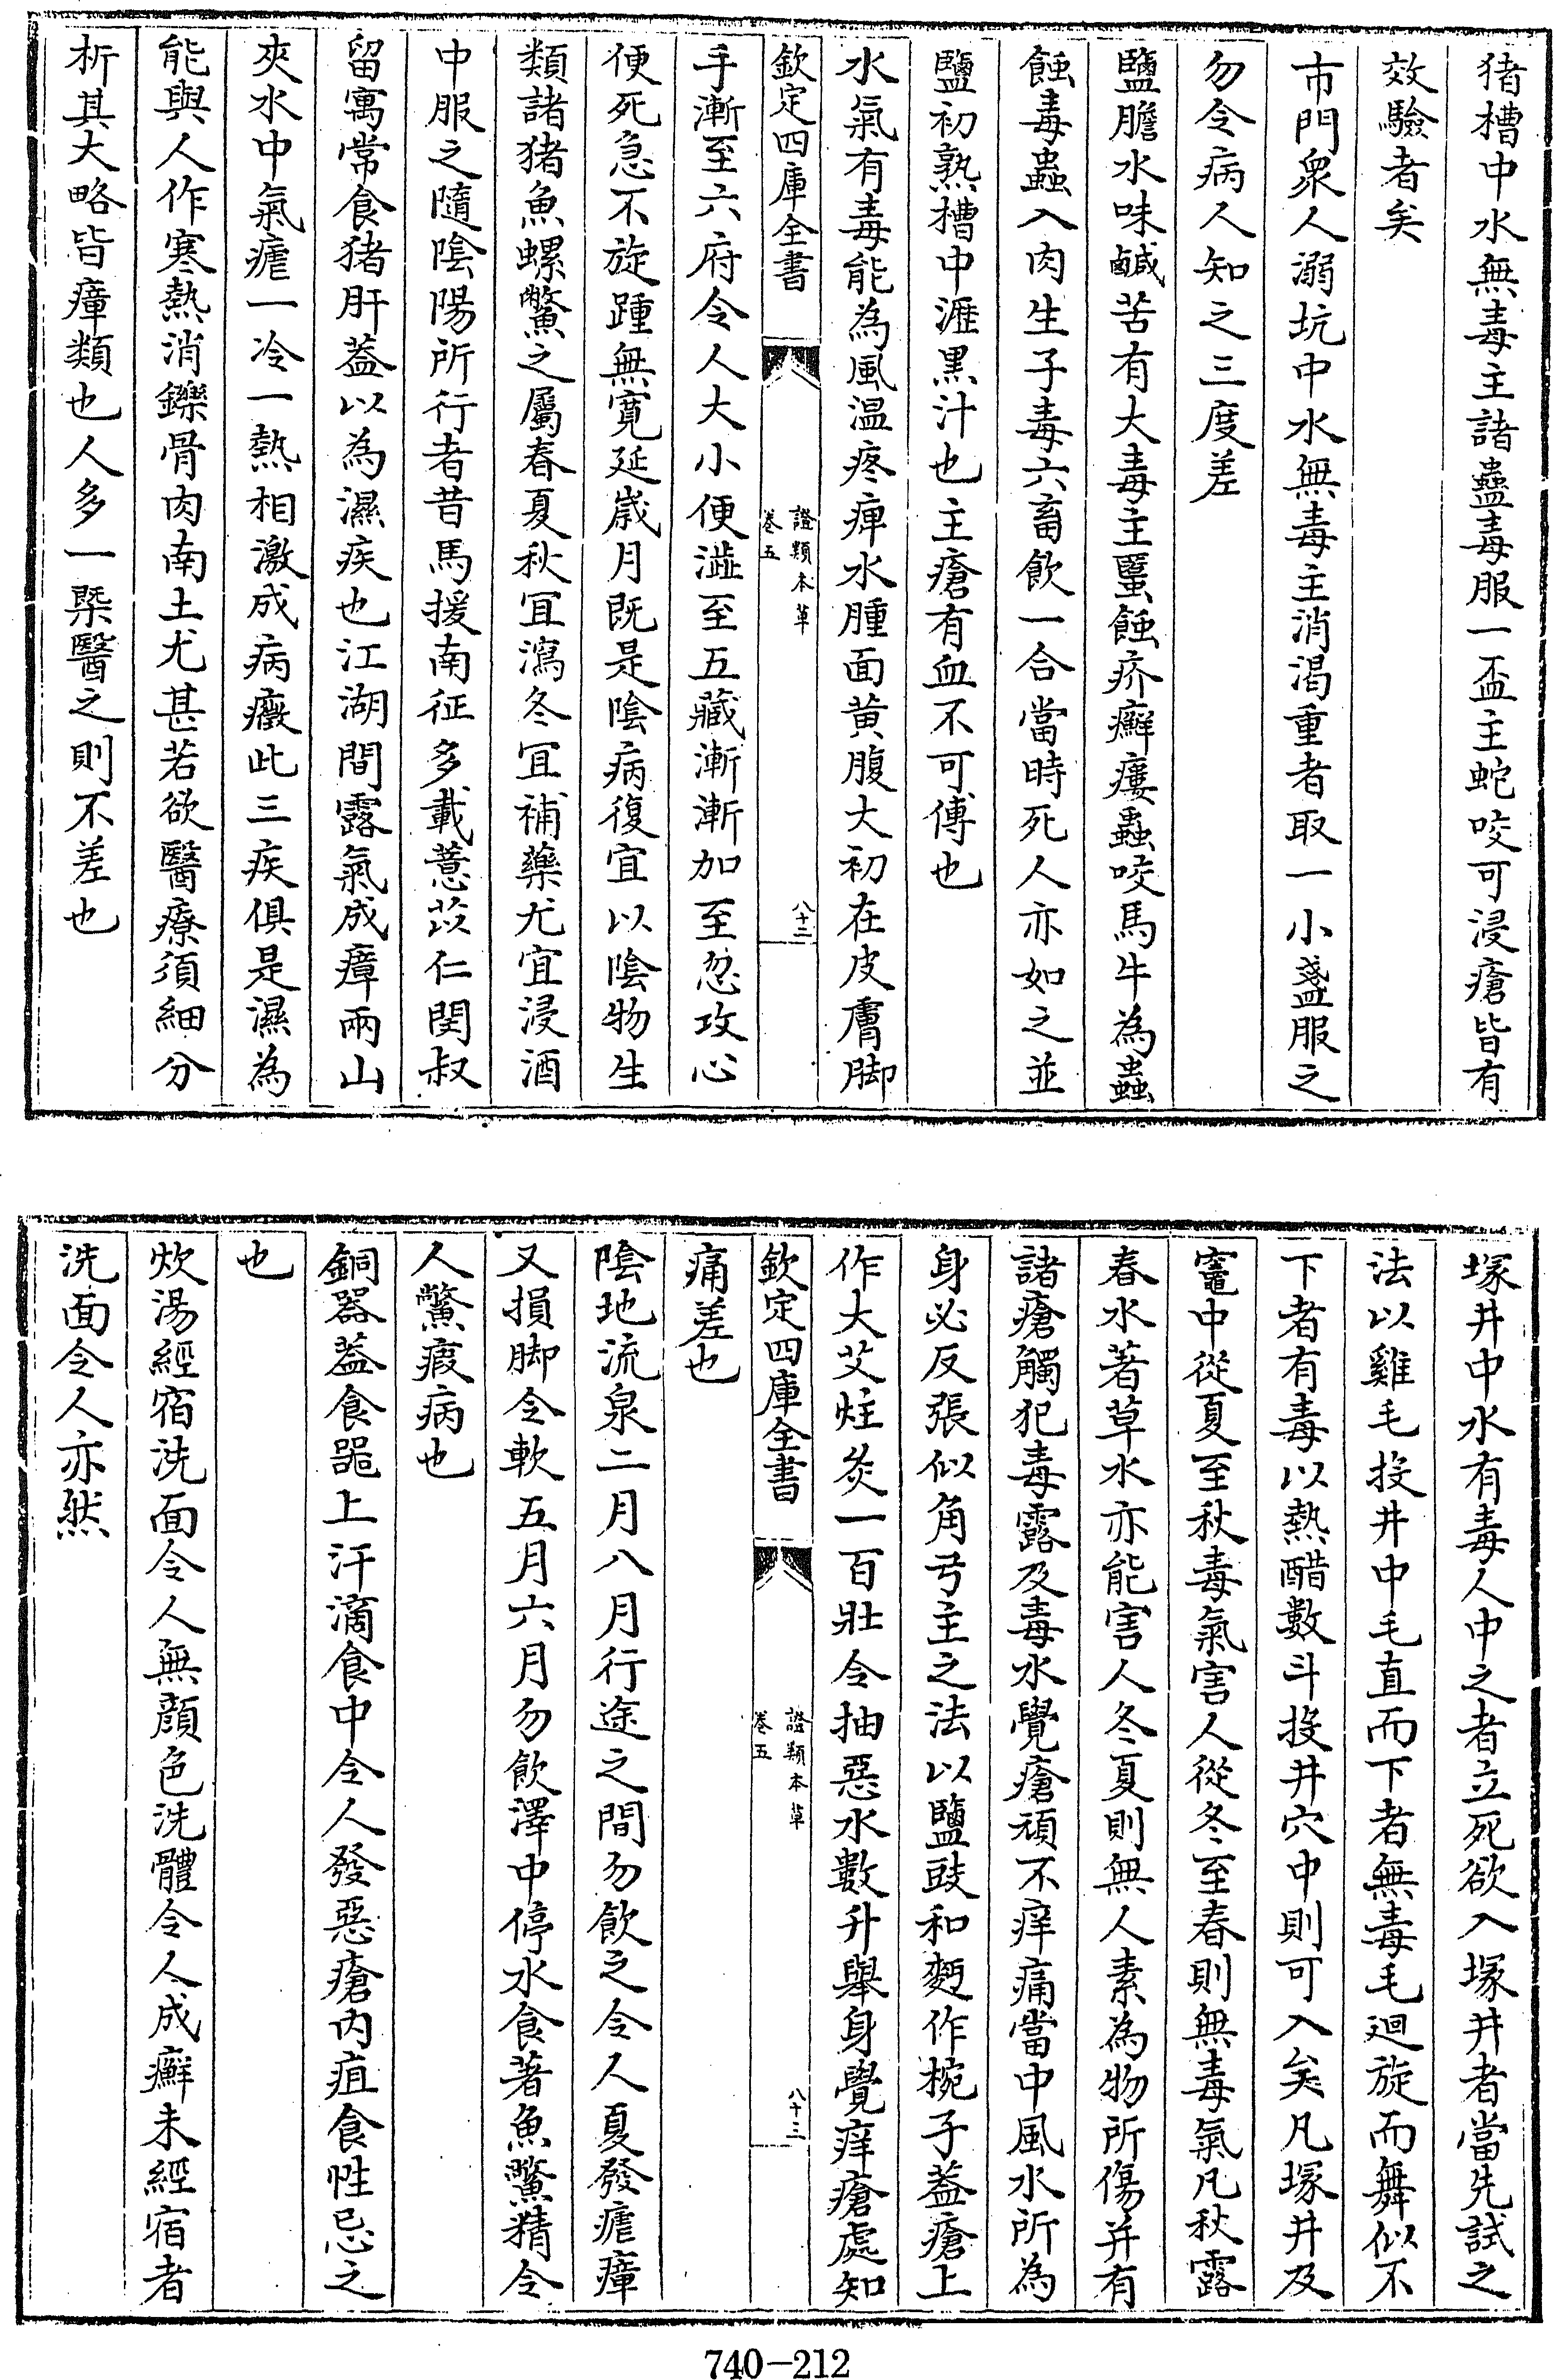 猪槽中水無毒主諸蠱毒服一盃主蛇咬可浸瘡皆有
效驗者矣
市門衆人溺坑中水無毒主消渴重者取一小盞服之
勿令病人知之三度差
鹽膽水味鹹苦有大毒主䘌蝕疥癬瘻蟲咬馬牛為蟲
蝕毒蟲入肉生子毒六畜飲一合當時死人亦如之並
鹽初熟槽中瀝黑汁也主瘡有血不可傅也
水氣有毒能為風温疼痺水腫面黄腹大初在皮膚脚
欽定四庫全書
證類本草
卷五
八十二
手漸至六府令人大小便澁至五藏漸漸加至忽攻心
便死急不旋踵無寛延歳月既是陰病復宜以陰物生
類諸猪魚螺鱉之屬春夏秋宜瀉冬宜補藥尤宜浸酒
中服之隨陰陽所行者昔馬援南征多載薏苡仁閔叔
留寓常食猪肝蓋以為濕疾也江湖間露氣成瘴兩山
夾水中氣瘧一冷一熱相激成病癥此三疾俱是濕為
能與人作寒熱消鑠骨肉南土尤甚若欲醫療須細分
析其大略皆瘴類也人多一槩醫之則不差也
塚井中水有毒人中之者立死欲入塚井者當先試之
法以雞毛投井中毛直而下者無毒毛廻旋而舞似不
下者有毒以熱醋數斗投井穴中則可入矣凡塚井及
竈中從夏至秋毒氣害人從冬至春則無毒氣凡秋露
春水著草水亦能害人冬夏則無人素為物所傷并有
諸瘡觸犯毒露及毒水覺瘡頑不痒痛當中風水所為
身必反張似角弓主之法以鹽豉和麪作椀子蓋瘡上
作大艾炷灸一百壯令抽惡水數升舉身覺痒瘡處知
欽定四庫全書
證類本草
卷五
八十三
痛差也
陰地流泉二月八月行途之間勿飲之令人夏發瘧瘴
又損脚令軟五月六月勿飲澤中停水食著魚鱉精令
人鱉瘕病也
銅器蓋食器上汗滴食中令人發惡瘡内疽食性忌之
也
炊湯經宿洗面令人無顔色洗體令人成癬未經宿者
洗面令人亦然
740-212